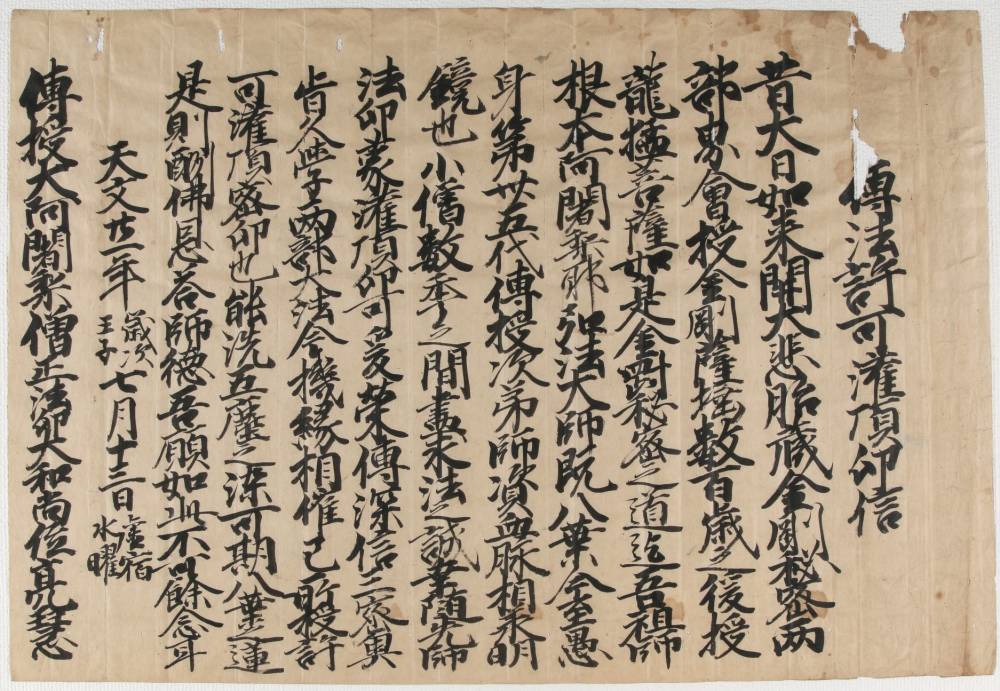 傳法許可灌頂印信
昔大日如来開大悲胎蔵金剛秘密両
部界會授金剛薩埵数百歳之後授
龍猛菩薩如是金剛秘密之道迄吾祖師
根本阿闍梨耶弘法大師既八葉今至愚
身第卅五代傳授次第師資血脉相承明
鏡也小僧数年之間盡求法之誠幸随先師
法印蒙灌頂印可爰榮傳深信三密奥
旨久学両部大法今機縁相催已所授許
可灌頂密印也能洗五塵之染可期八葉之蓮
是則酬佛恩荅師徳吾願如此不可餘念耳
天文廿一年歳次壬子七月十三日虚宿水曜
傳授大阿闍梨僧正法印大和尚位亮慧